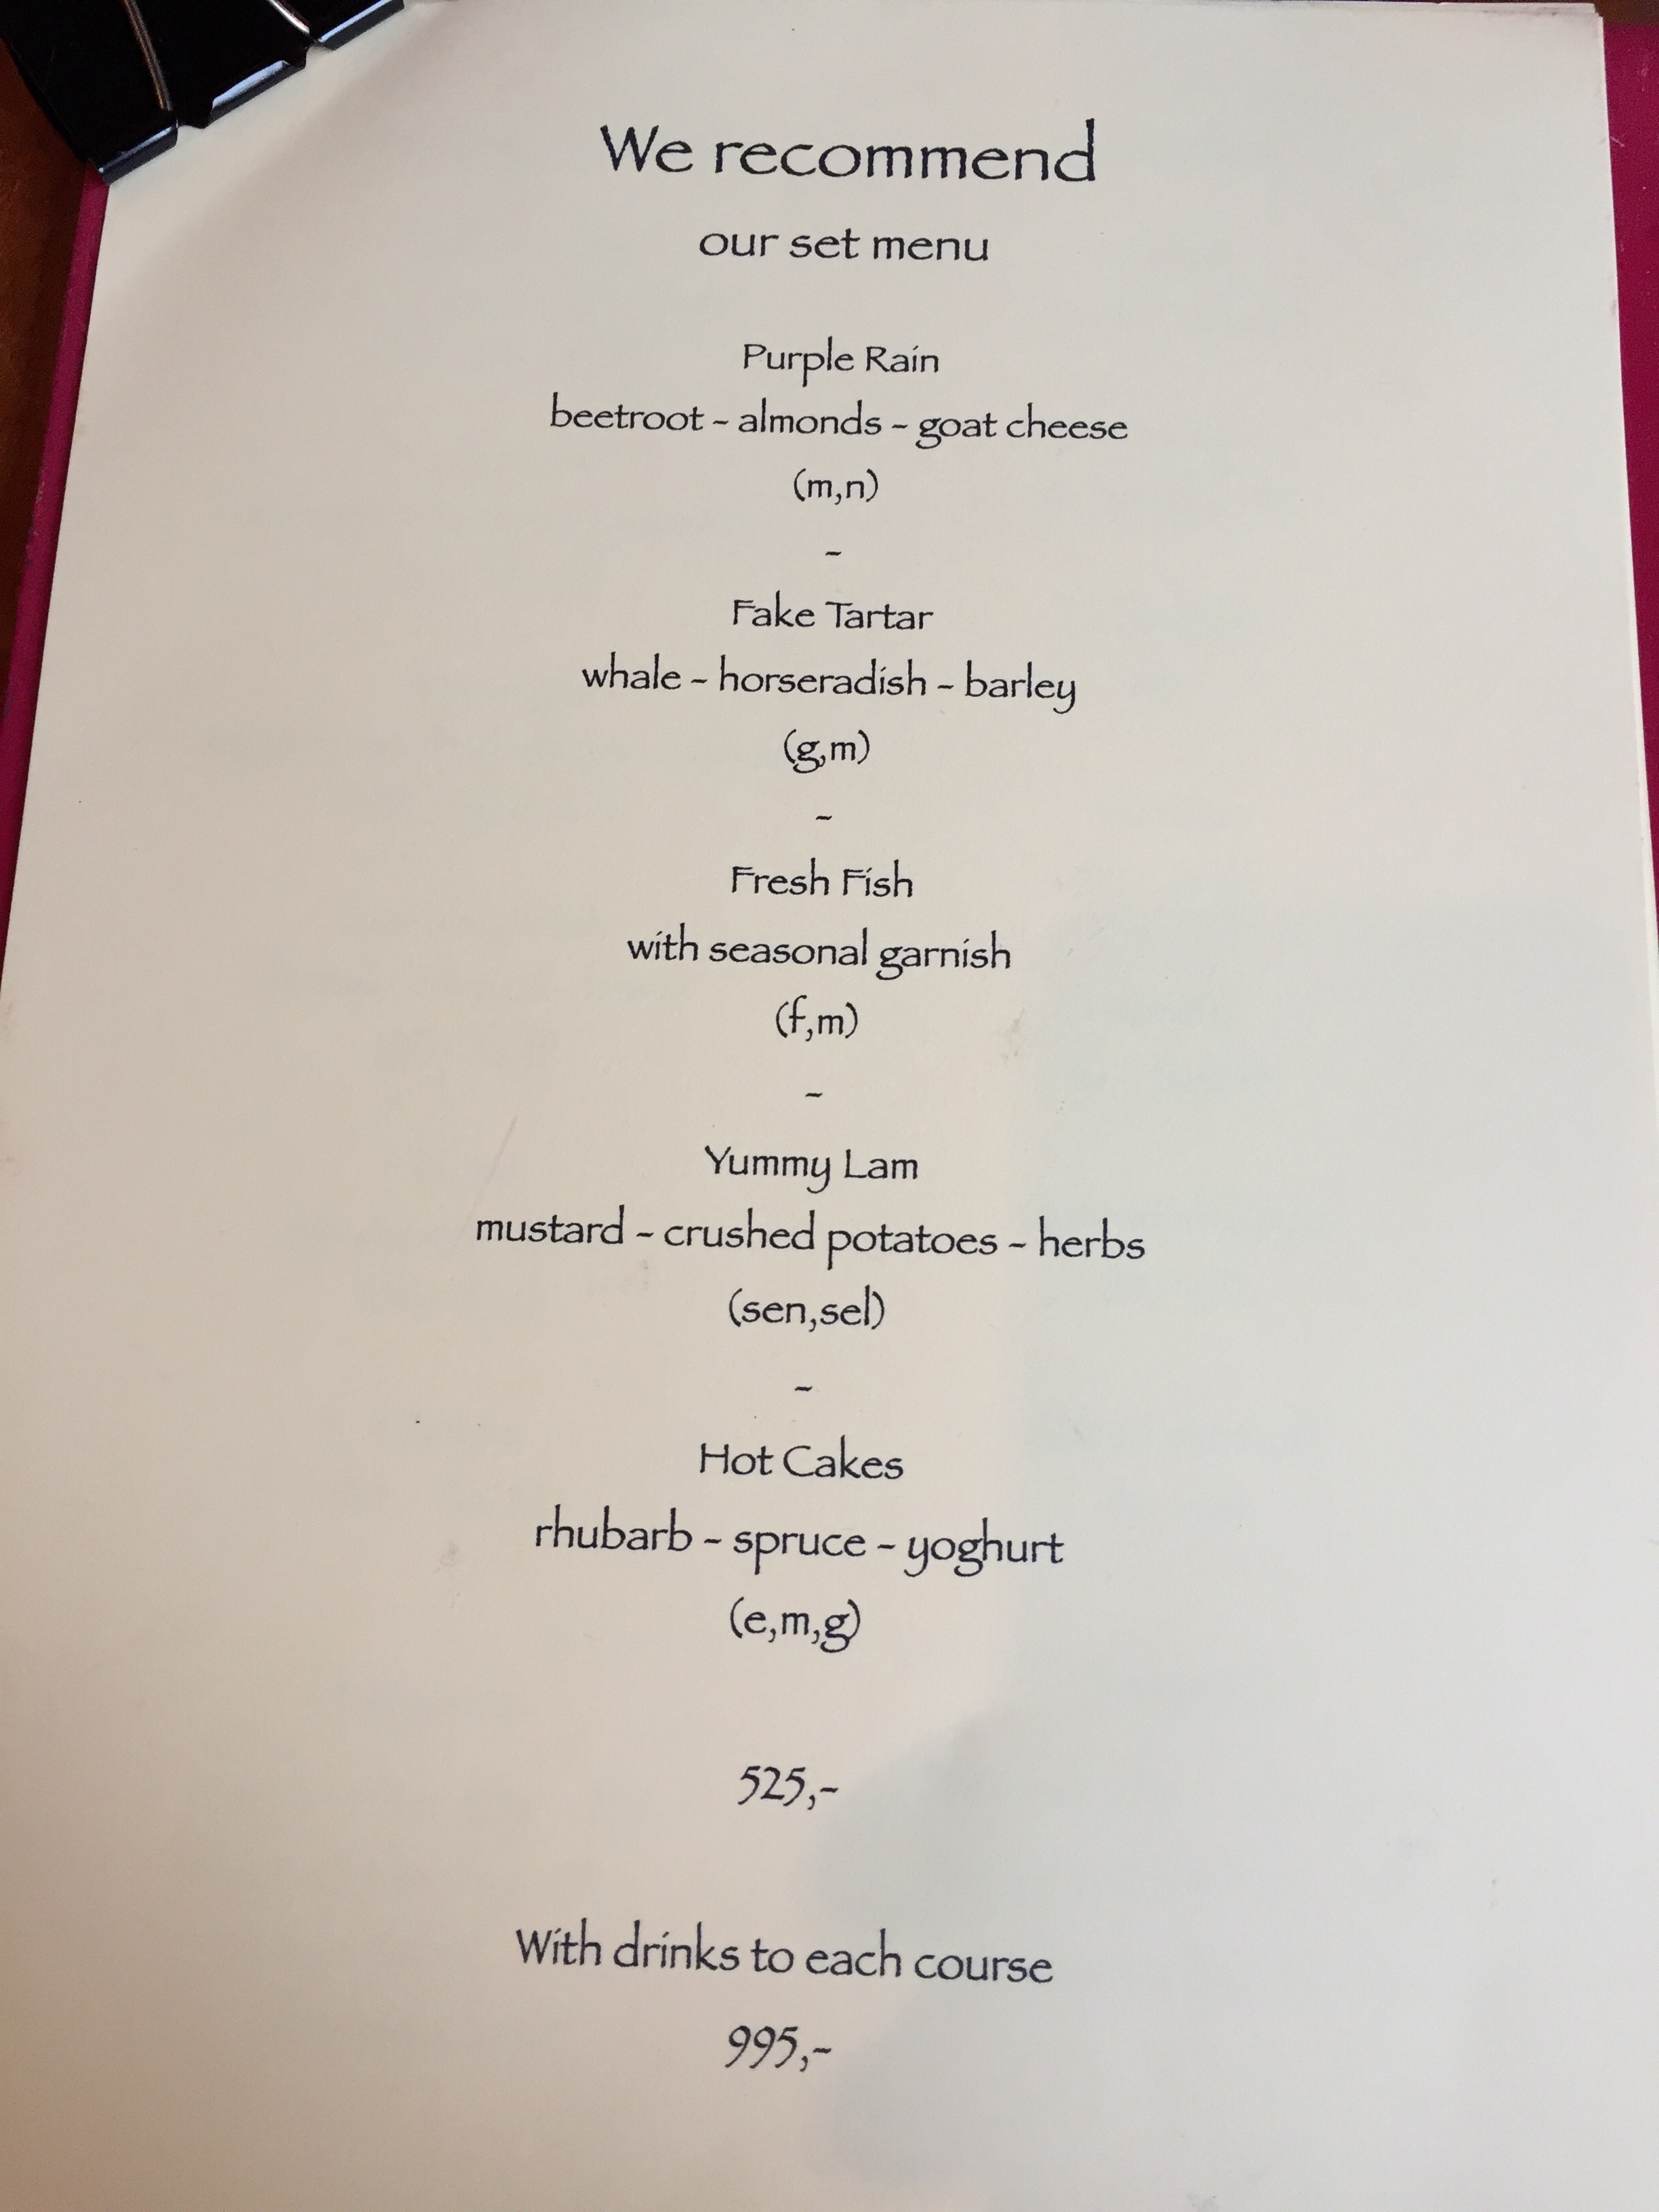 We recommend
our set menu
Purple Rain
beetroot ~ almonds ~ goat cheese
(m,n)
~
Fake Tartar
whale ~ horseradish ~ barley
(g,m)
~
Fresh Fish
with seasonal garnish
(f,m)
~
Yummy Lam
mustard ~ crushed potatoes ~ herbs
(sen,sel)
~
Hot Cakes
rhubarb ~ spruce ~ yoghurt
(e,m,g)
525,~
With drinks to each course
995,~